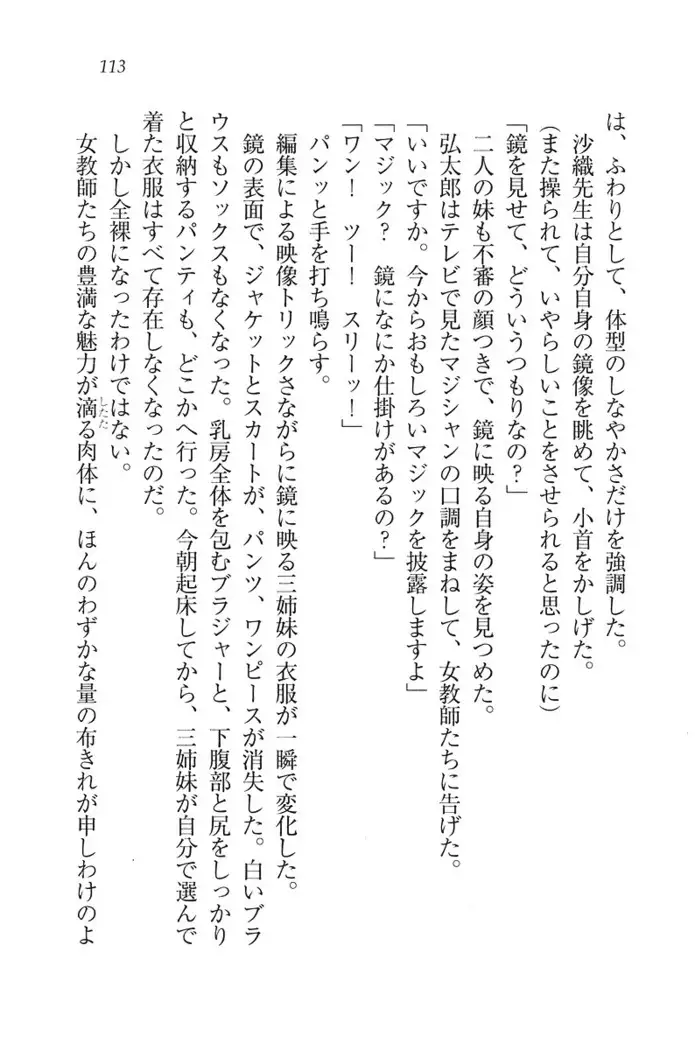 113
は、ふわりとして、体型のしなやかさだけを強調した。
沙織先生は自分自身の鏡像を眺めて、小首をかしげた。
(また操られて、いやらしいことをさせられると思ったのに)
「鏡を見せて、どういうつもりなの?」
二人の妹も不審の顔つきで、鏡に映る自身の姿を見つめた。
弘太郎はテレビで見たマジシャンの口調をまねして、女教師たちに告げた。
「いいですか。今からおもしろいマジックを披露しますよ」
「マジック? 鏡になにか仕掛けがあるの?」
「ワン! ツー! スリーッ!」
パンッと手を打ち鳴らす。
編集による映像トリックさながらに鏡に映る三姉妹の衣服が一瞬で変化した。
鏡の表面で、ジャケットとスカートが、パンツ、ワンピースが消失した。白いブラ
ウスもソックスもなくなった。乳房全体を包むブラジャーと、下腹部と尻をしっかり
と収納するパンティも、どこかへ行った。今朝起床してから、三姉妹が自分で選んで
着た衣服はすべて存在しなくなったのだ。
しかし全裸になったわけではない。
女教師たちの豊満な魅力が滴る肉体に、ほんのわずかな量の布きれが申しわけのよ
したた